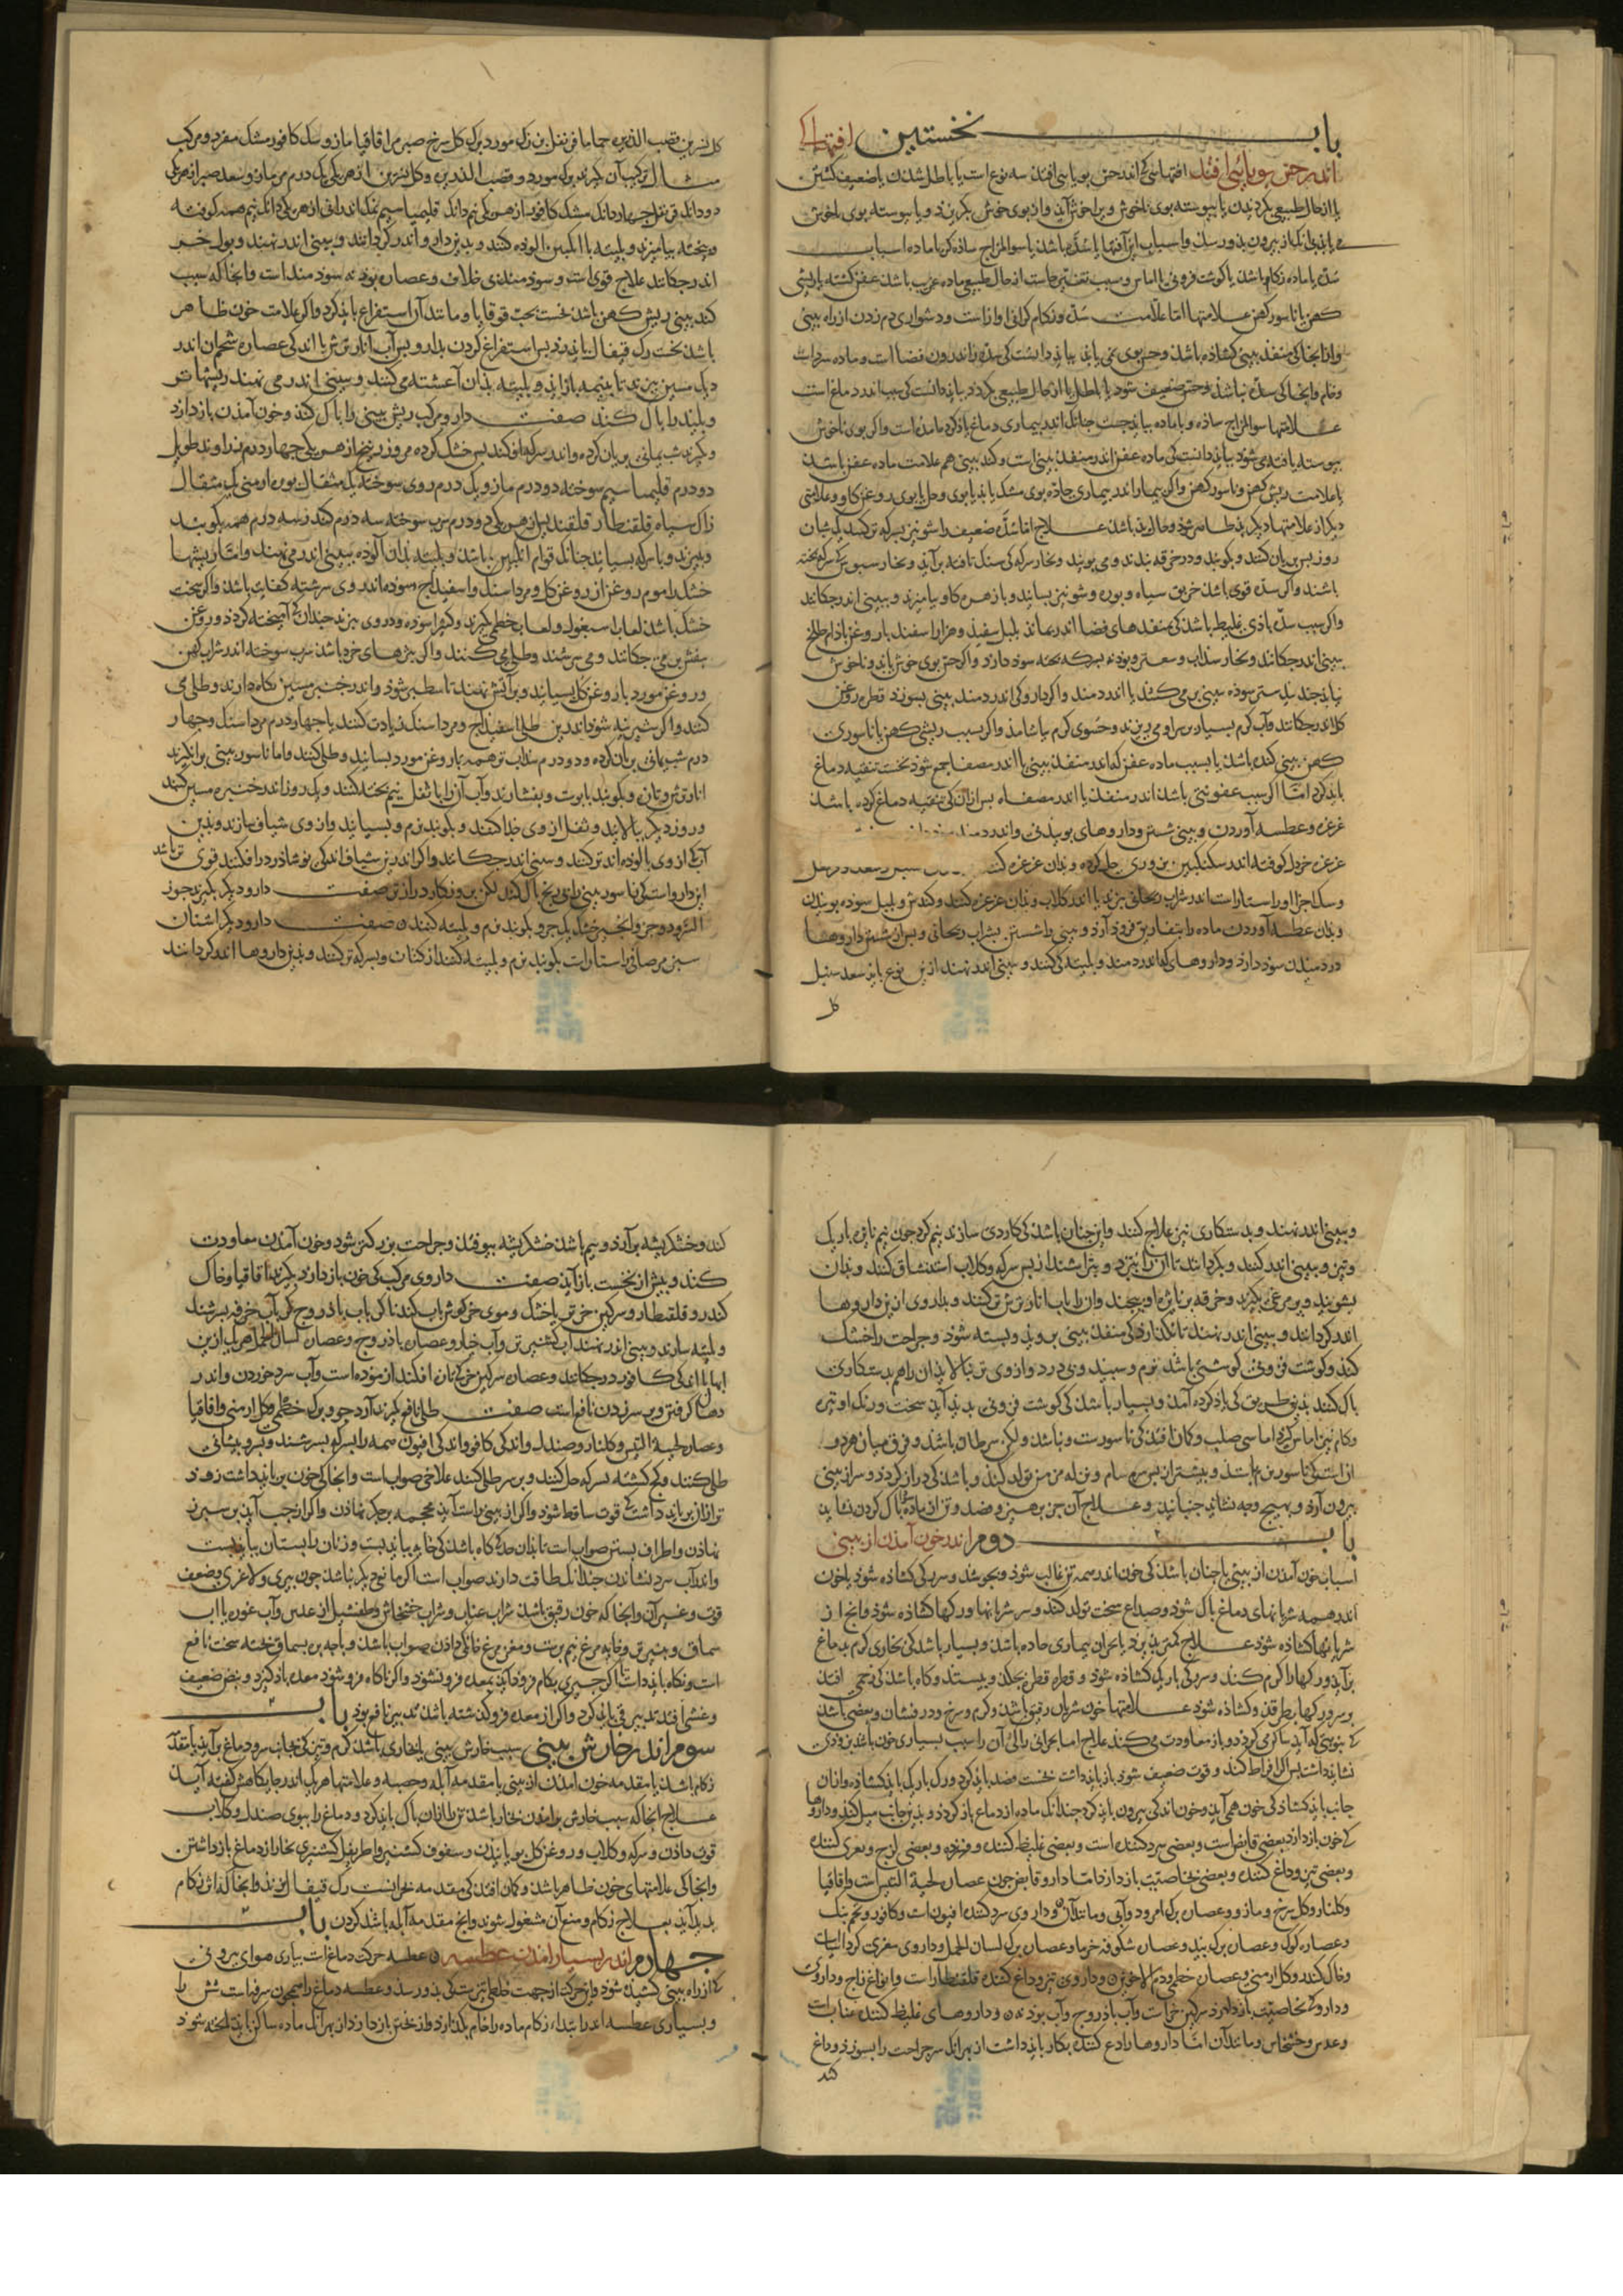 باب نخستین افتهایی که
اندر حس بویایی افتد افتهایی کی اندر حس بویایی افتد سه نوع است یا باطل شدن یا ضعیف کشتن
یا از حال طبیعی بکردیدن یا پیوسته بوی ناخوش ویرا خوش آید و از بوی خوش بکریزد و یا پیوسته بوی ناخوش
می یابد بی انک از بیرون بذو رسد و اسباب این آفتها یا سده باشد یا سوالمزاج ساذه کی با ماده اسباب
سده یا ماده زکام باشد یا کوشت فزونی یا اماس و سبب تغیر حاست از حال طبیعی ماده عفن باشد عفن کشته یا ریشی
کهن یا ناسور کهن علامتها اما علامت سده و زکام کرانی اواز است و دشواری دم زدن از راه بینی
و از انجا کی منفذ بینی کشاذه باشد و حس بوی نمی یابد بباید دانست کی سده اندرون فضا است و ماده سرد است
و خام و انجا کی سده نباشد و حس ضعیف شود یا باطل یا از حال طبیعی بکردد بباید دانست کی سبب اندر دماغ است
علامتها سوالمزاج ساذه و با ماده بباید جست چنانک اندر بیماری دماغ یاذ کرده امذه است و اکر بوی ناخوش
پیوسته یافته می شود بباید دانست کی ماده عفن اندر منفذ بینی است و کند بینی هم علامت ماده عفن باشد
یا علامت ریش کهن و ناسور کهن و اکر بیمار اندر بیماری حاده بوی مشک یابد یا بوی و حل یا بوی روغن کاو و علامتی
دیکر از علامتها بد دیکر بذید ظاهر شود و حال بد باشد علاج اما سده ضعیف را شونیز بسرکه تر کنند یک شبان
روز پس بریان کنند و بکوبند و در خرقه بندند و می بویند و بخار سرکه کی سنک تافته برآید و بخار سبوس کی بسرکه پخته
باشند و اکر سده قوی باشد خربق سیاه و بوره و شونیز بسایند و با زهره کاو بیامیزند و ببینی اندر چکانند
و اکر سبب سده باذی غلیظ باشد کی منفذهای فضا اندر بماند بلبل سفید و هزار اسفند با روغن باذام تلخ
ببینی اندر چکانند و بخار سذاب و سعتر و پوذنه بسرکه پخته سود دارد و اکر حس بوی خوش یابد و ناخوش
نیابد جند بیدستر سوذه ببینی بر می کشند یا اندر دمند و اکر داروی کی اندر دمند بینی بسوزد قطره روغن
کل اندر چکانند و آب کرم بسیار بر سر او می ریزند و حسوی کرم بیاشامد و اکر سبب ریشی کهن یا ناسوری
کهن بینی کنده باشد یا بسبب ماده عفن کی اندر منفذ بینی یا اندر مصفا جمع شود نخست تنقیه دماغ
باید کرد اما اکر سبب عفونتی باشد اندر منفذ یا اندر مصفاه پس از آن کی تنقیه دماغ کرده باشند
غرغره و عطسه آوردن و بینی شستن و داروهای بویندنی و اندر دمند
غرغره خردل کوفته اندر سکنکبین بزوری حل کرده و بذان غرغره کند
و سک اجزا اوراستاراست اندر شراب ریحانی بپزند یا اندر کلاب و بذان غرغره کنند و کندش و بلبل سوذه بویذن
و بذان عطسه آوردن ماده را بتفاریق فروذ آرد و بینی را شستن بشراب ریحانی و پس از شستن داروها
در دمیدن سود دارد و داروهای کی اندر دمند و بلیته کی کنند و ببینی اندر نهند ازین نوع باید سعد سنبل
کل
کل نسرین قصب الذریره حماما قرنفل زرنب مورد برک کل سرخ صبر مر اقاقیا مازو سک کافور مشک مفرد و مرکب
مثال ترکیب آن بکیرند برک مورد و قصب الذریره و کل نسرین از هر یکی یک درم مر مازو سعد صبر از هر یکی
دو دانک قرنفل چهار دانک مشک کافور از هر یکی نیم دانک قلیمیا سیم نمک اندرانی از هر یکی دانک نیم همه کوفته
و بیخته بیامیزند و بلیته با انکبین الوده کنند و بدین دارو اندر کردانند و ببینی اندر نهند و بول خر
اندر چکانند علاج قوی است و سود مند ی خلاف و عصاره پوذنه سود مند است و انجا که سبب
کند بینی ریش کهن باشد نخست بحب قوقایا و مانند آن استفراغ باید کرد و اکر علامت خون ظاهر
باشد نخست رک قیفال باید زد پس استفراغ کردن بدارو پس آب انار ترش با اندکی عصاره شحم آن اندر
دیک مسین بپزند تا بنیمه باز آید و بلیته بذان آغشته می کنند و ببینی اندر می نهند ریشها تر
و پلید را پاک کند صفت دارو مرکب ریش بینی را پاک کند و خون آمذن باز دارد
و بکیرند شب یمانی بریان کرده و اندر سرکه افکنند پس خشک کرده مر و زرنیخ از هر یکی چهار درم زراوند طویل
دو درم قلیمیا سیم سوخته دو درم مازو یک درم روی سوخته یک مثقال بوره ارمنی یک مثقال
زاک سیاه قلقطار قلقند از هر یکی دو درم سرب سوخته سه درم کندر سه درم همه بکوبند
و بپزند و با سرکه بسایند چنانک قوام انکبین باشد و بلیته بذان آلوده ببینی اندر می نهند و اما ریشها
خشک را موم روغن از روغن کل و مرداسنک و اسفیذاج سوذه اندر وی سرشته کفایت باشد و اکر سخت
خشک باشد لعاب اسبغول و لعاب خطمی بکیرند و کثیرا سوذه و در وی بپزند چندان کی آمیخته کردد و روغن
بنفش بر می چکانند و می سرشند و طلی می کنند و اکر بثرهای خرد باشد سرب سوخته اندر شراب کهن
و روغن مورد یا روغن کل بسایند و بر آتش نهند تا سطبر شود و اندر حقه مسین نکاه دارند و طلی می
کنند و اکر
درم شب یمانی بریان کرده و دو درم سذاب تر همه با روغن مورد بسایند و طلی کنند و اما ناسور بینی را بکیرند
انار ترش و تازه و بکوبند با پوست و بفشارند و آب آن را با ثفل نیم پخته کنند و یک روز اندر خنبره مسین کنند
و روز دیکر بپالایند و ثفل از وی جذا کنند و بکوبند نرم و بسایند و از وی شیاف سازند و بذین
آب کی از وی پالوده اند تر کنند و ببینی اندر چکانند و اکر اندرین شیاف اندکی نوشاذر در افکنند قوی تر باشد
این دارو است کی ناسور بینی را بی رنج پاک کند لکن روزکار دراز تر صفت دارو دیکر بکیرند جوز
السرو و جز و انجیر خشک یک جزو بکوبند نرم و بلیته کنند صفت دارو دیکر اشنان
سبز مر صافی راستا راست بکوبند نرم و بلیته کنند از کتان و بسرکه تر کنند و بذین داروها اندر کردانند
و ببینی اندر نهند و بدستکاری نیز علاج کنند و این چنان باشد کی کاردی سازند نیم کرد چون نیم نایژه باریک
و تیز و ببینی اندر کنند و بکردانند تا آن را ببرد و بتراشند از پس سرکه و کلاب استنشاق کنند و بذان
بشویند و پر مرغی بکیرند و خرقه بر نایژه او پیچند و آن را بآب انار ترش تر کنند و بداروی ازین داروها
اندر کردانند و ببینی اندر نهند تا نکذارد کی منفذ بینی بروید و بسته شود و جراحت را خشک
کند و کوشت فزونی کوشتی باشد نرم و سپید و بی درد و از وی تری پالاید آن را هم بدستکاری
پاک کنند بذین طریق کی یاذ کرده آمد و بسیار باشد کی کوشت فزونی بدید آید سخت و رنک او تیره
و کام نیز اماس کیرد اماسی صلب و کمان افتد کی ناسورست و نباشد ولکن سرطان باشد و فرق میان هر دو
ان است کی ناسور نرم باشد و بیشتر از پس سرسام و نزله مزمن تولد کند و باشد کی دراز کردد و سر از بینی
بیرون آرد و بهیچ وجه نشاید جنبانید و علاج آن جز پرهیز و فصد و تن از ماده سوداء پاک کردن نشاید
باب دوم اندر خون آمدن از بینی
اسباب خون آمدن از بینی یا چنان باشد کی خون اندر همه تن غالب شود و بجوشد و سر رکی کشاذه شود یا خون
اندر همه شریانهای دماغ پاک شود و صداع سخت تولد کند و سر شریانها و رکها کشاذه شود و انچ از
شریانها کشاذه شود علاج کمتر پذیرد یا بحران بیماری حاده باشد و بسیار باشد کی بخاری کرم بدماغ
برآید و رکها را کرم کند و سر رکی باریک کشاذه شود و قطره قطره بچکد و بیستد و کاه باشد کی زخمی افتد
بر سر و رکها بطرقد و کشاذه شود علامتها خون شریان رقیق باشد و کرم و سرخ و درفشان و بعضی باشد
کی بنوبتی که آید ساکن می کردد و باز معاودت می کند علاج اما بحرانی را الی آن را سبب بسیاری خون باشد بزودی
نشاید داشت پس اکر افراط کند و قوت ضعیف شود باز باید داشت نخست فصد باید کرد و رک باریک باید کشاد و از آن
جانب باید کشاد کی خون همی آید و خون اندکی بیرون باید کرد چندانک ماده از دماغ باز کردد و بذین جانب میل کند و داروها
کی خون باز دارد بعضی قابض است و بعضی سرد کننده است و بعضی غلیظ کننده و فسرنده و بعضی لزج و مغری کننده
و بعضی تیز و داغ کننده و بعضی بخاصیت باز دارد اما دارو قابض چون عصاره لحیة التیس است و اقاقیا
و کلنار و کل سرخ و مازو و عصاره برک امرود و آبی و مانند آن و داروی سرد کننده افیون است و کافور و تخم بنک
و عصاره کوک و عصاره برک بید و عصاره شکوفه خرما و عصاره برک لسان الحمل و داروی مغری کرد آسیا است
و خاک کندر و کل ارمنی و عصاره خطمی و دم الاخوین و داروی تیز و داغ کننده قلقطار است و انواع زاج و داروی
و داروی کی بخاصیت باز دارد سرکین خر است و آب باذروج و آب پوذنه و داروهای غلیظ کننده عناب است
و عدس و خشخاش و مانند آن اما داروها داغ کننده بکار باید داشت از بهر انک سر جراحت را بسوزد و داغ
کند
کند و خشک ریشه برآرد و بیم باشد خشک ریشه بیوفتد و جراحت بزرکتر شود و خون آمدن معاودت
کند و بیش از نخست باز آید صفت داروی مرکب کی خون باز دارد بکیرند اقاقیا و خاک
کندر و قلقطار و سرکین خر تر یا خشک و موی خرکوش باب کندنا کی باب باذروج کی آب خرفه بسرشند
و بلیته سازند و ببینی اندر نهند آب کشنیز تر و آب خیار و عصاره باذروج و عصاره لسان الحمل هر یک ازین
آبها با اندکی کافور در چکانند و عصاره سرکین خر تازه افکند آزموده است و آب سرد خوردن و اندر
دهان کرفتن و بر سر زدن نافع است صفت طلی نافع بکیرند آرد جو و برک خطمی و کل ارمنی و اقاقیا
و عصاره لحیة التیس و کلنار و صندل و اندکی کافور و اندکی افیون همه را بسرکه بسرشند و بر سر و پیشانی
طلی کنند و کچ کشته بسرکه حل کنند و بر سر طلی کنند علاجی صواب است و انجا کی خون بر باید داشت زود
تر از آن بر باید داشت کی قوت ساقط شود و اکر از بینی راست آید محجمه بر جکر نهاذن و اکر از چپ آید بر سپرز
نهاذن و اطراف بستن صواب است تا بذان حد کی کاه باشد کی خایه بباید بست و زنان را پستان بباید بست
و اندر آب سرد نشاندن چندانک طاقت دارند صواب است اکر مانعی دیکر نباشد چون پیری و لاغری و ضعف
قوت و غیر آن و انجا که خون رقیق باشد شراب عناب و شراب خشخاش و طفشیل از عدس و آب غوره یا آب
سماق و پنیر تر و خایه مرغ نیم برشت و مغز مرغ خانکی داذن صواب باشد و پاچه بره بسماق پخته سخت نافع
است و نکاه باید داشت تا اکر چیزی بکام فروذ آید بمعده فرو نشود و اکر ناکاه فرو شود معده باذ کیرد و نبض ضعیف
و غشی افتد تدبیر قی باید کرد و اکر از معده فرو کذشته باشد تدبیر نافع بود باب
سوم اندر خارش بینی سبب خارش بینی یا بخاری باشد کرم و تیز کی بجانب سر و دماغ برآید یا مقدمه
زکام باشد یا مقدمه خون آمدن از بینی یا مقدمه آبله و حصبه و علامتها هر یک اندر جایکاهش کفته آید
علاج انجا که سبب خارش برآمدن بخار باشد تن را از آن پاک باید کرد و دماغ را ببوی صندل و کلاب
قوت داذن و سرکه و کلاب و روغن کل بویانیدن و سفوف کشنیز و اطریفل کشنیزی بخار از دماغ باز داشتن
و انجا کی علامتهای خون ظاهر باشد و کمان افتد کی مقدمه بحرانست رک قیفال زنند و انجا کی اثر زکام
بدید آید بعلاج زکام و منع آن مشغول شوند و انچ مقدمه آبله باشد کردن باب
چهارم اندر بسیار آمذن عطسه عطسه حرکت دماغ است بیاری هوای بیرونی
کی از راه بینی کشیده شود و این حرکت از جهت خلطی تیزست کی بذو رسد و عطسه دماغ را همچون سرفه است شش را
و بسیاری عطسه اندر ابتداء زکام ماده را خام بکذارد و از پختن باز دارد از بهر آنک ماده ساکن باید تا پخته شود